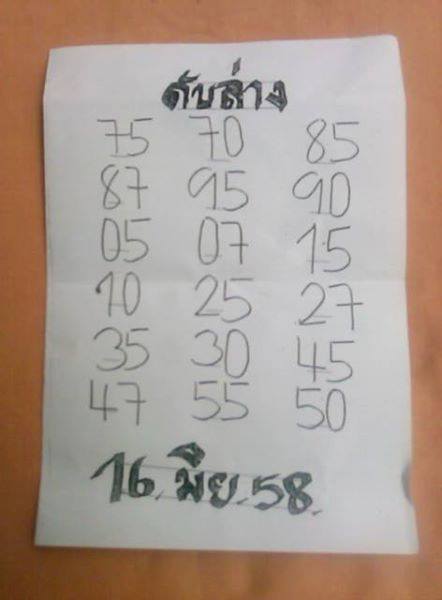 ดับล่าง
75 70 85
87 95 90
05 07 15
10 25 27
35 30 45
47 55 50
16 มิย 58